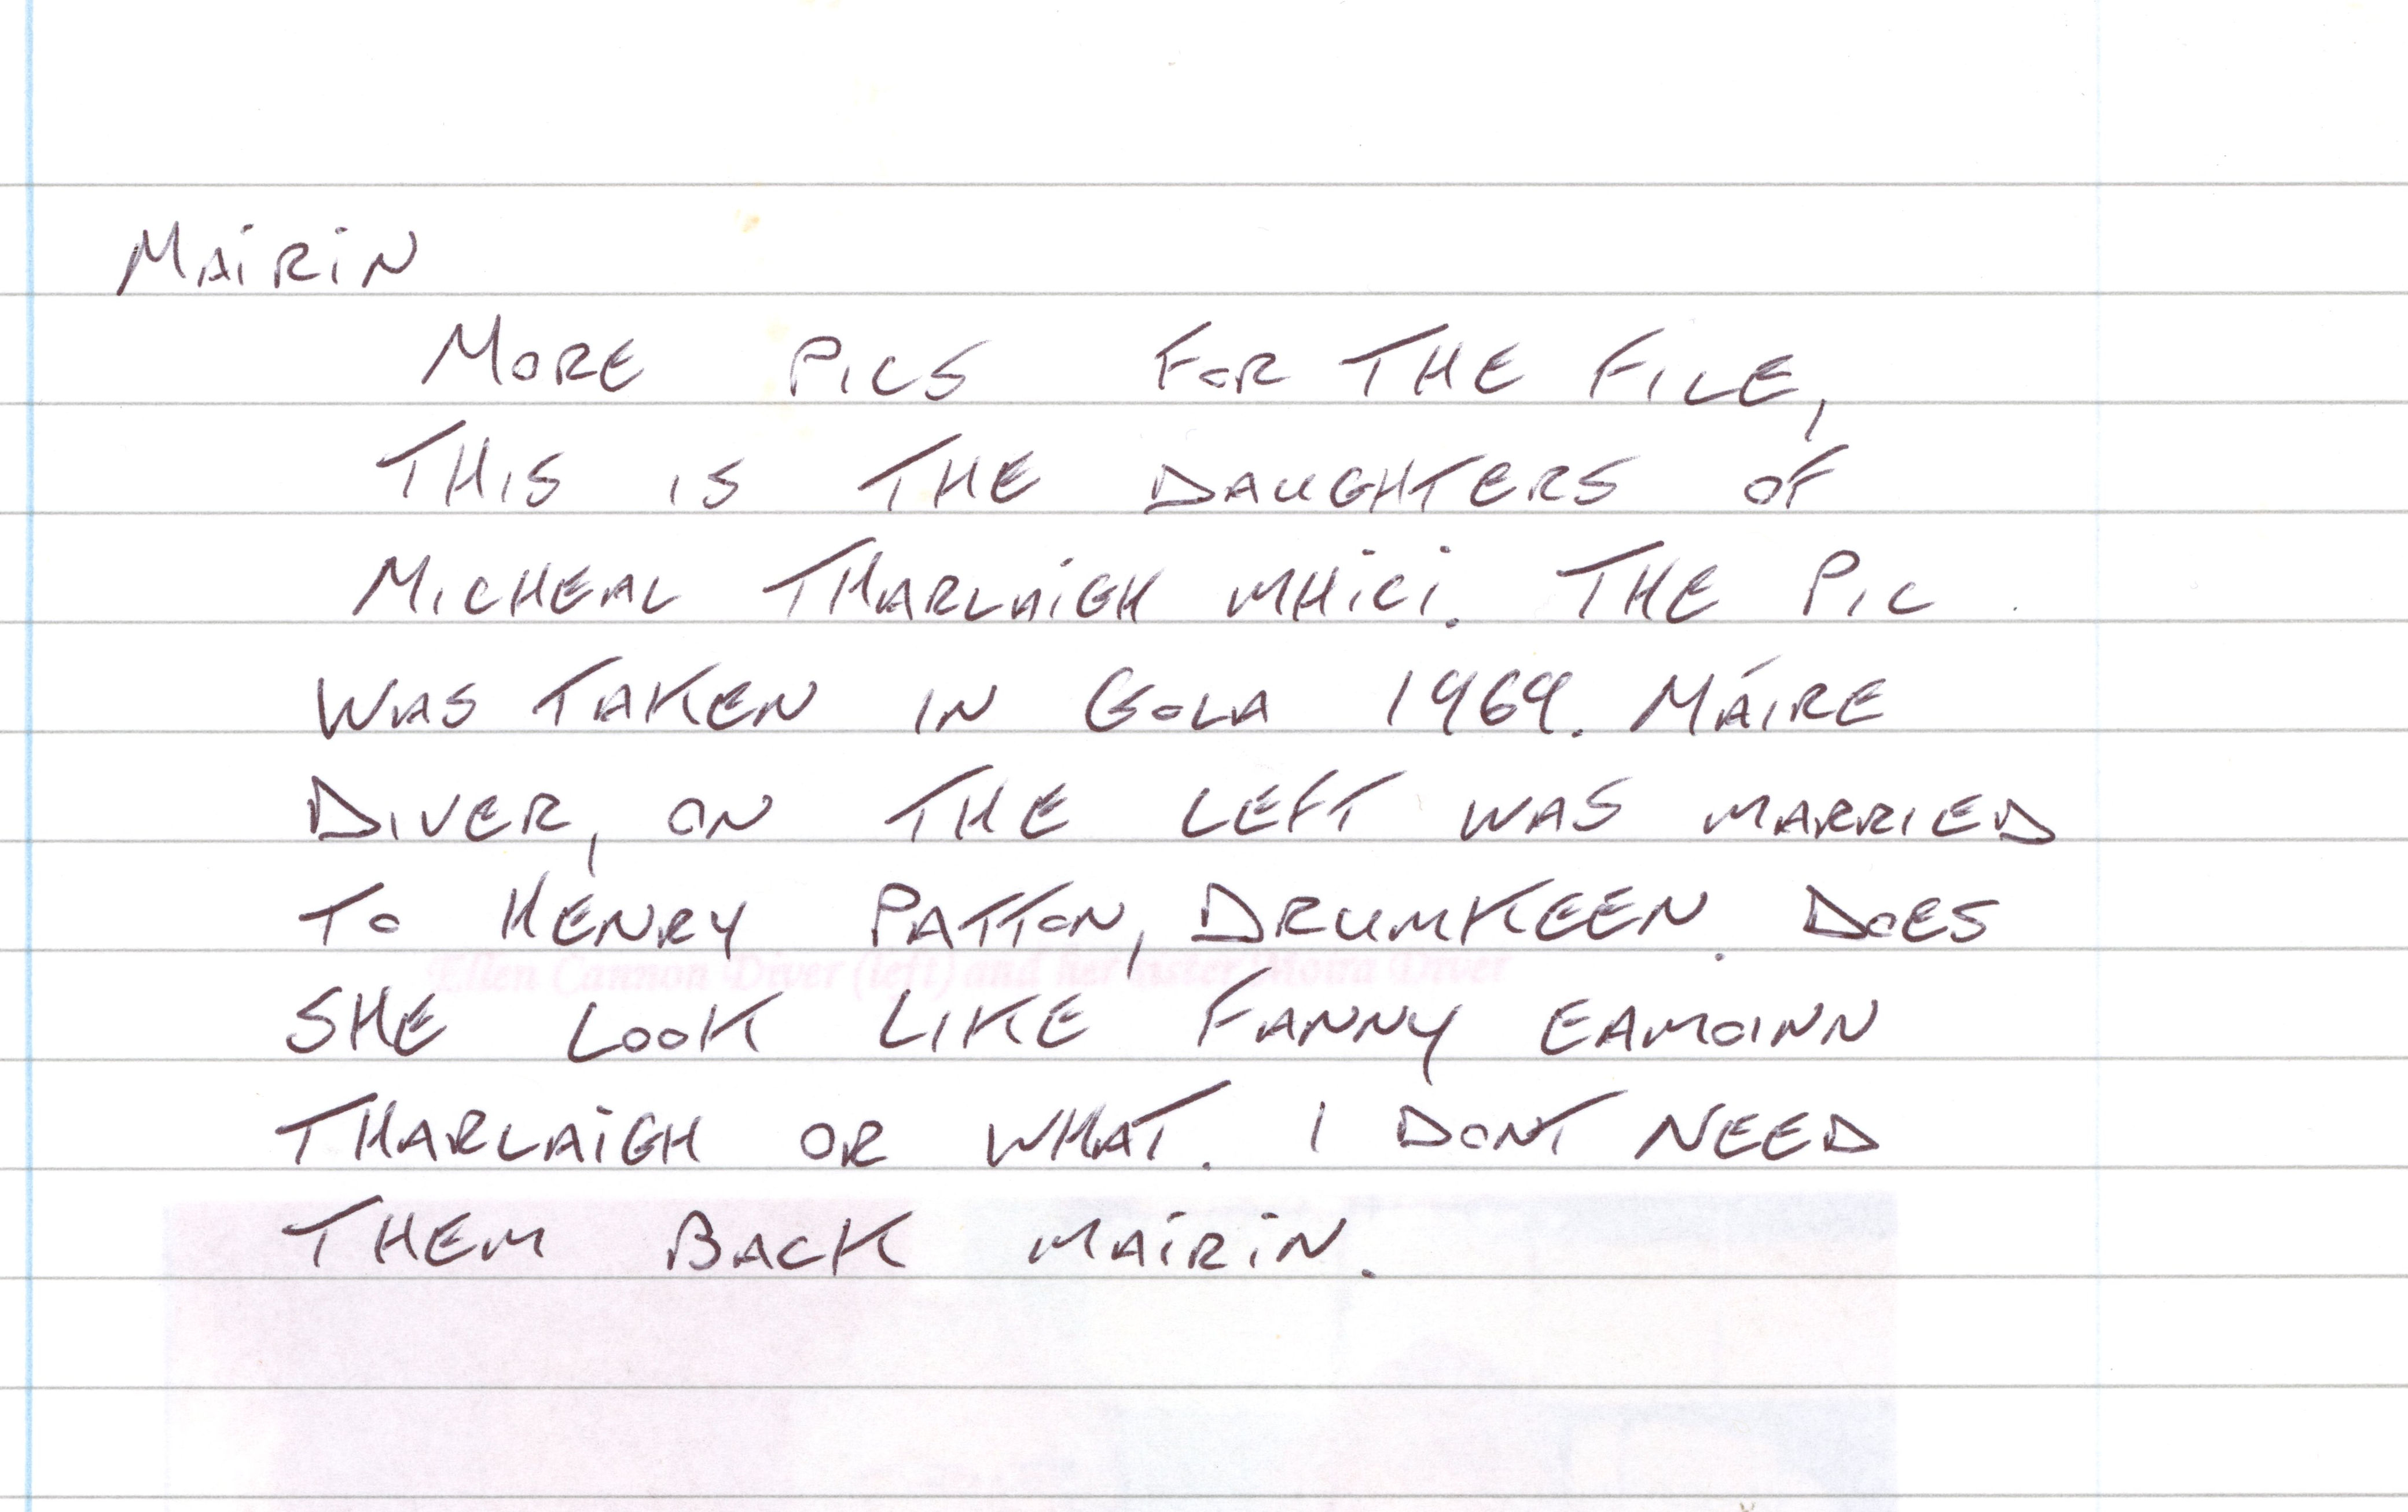 MAIRIN
MORE PICS FOR THE FILE,
THIS IS THE DAUGHTERS OF
MICHEAL THARLAIGH MHICI. THE PIC
WAS TAKEN IN GOLA 1969. MÁIRE
DIVER, ON THE LEFT WAS MARRIED
TO HENRY PATTON, DRUMKEEN. DOES
Ellen Cannon Diver (left) and her sister Moira Diver
SHE LOOK LIKE FANNY EAMOINN
THARLAIGH OR WHAT. I DONT NEED
THEM BACK MAIRIN.